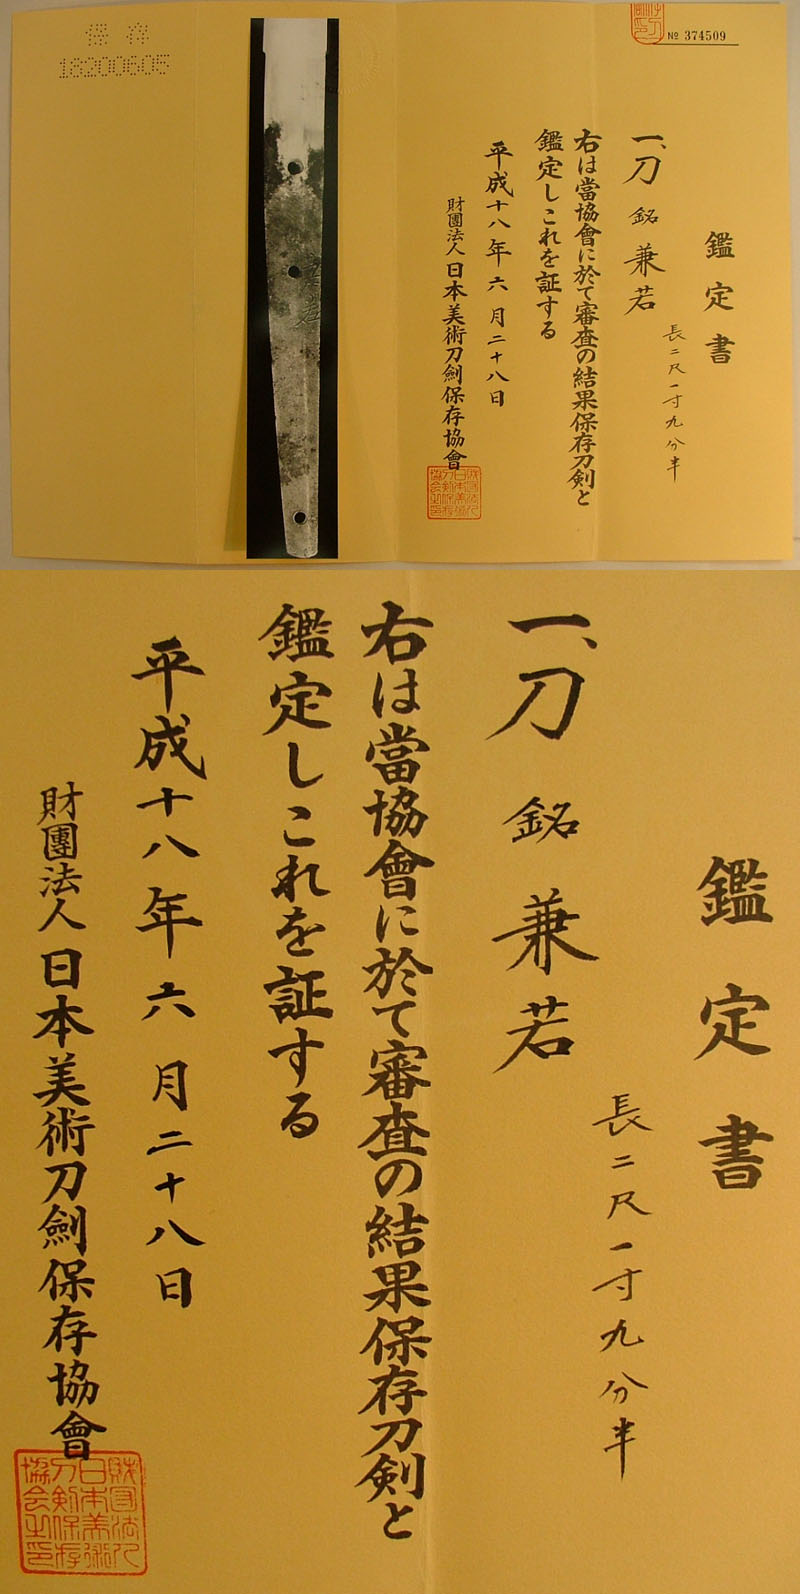 保存
18200605
№ 374509
鑑定書
一、刀 銘 兼若
長二尺一寸九分半
右は當協會に於て審査の結果保存刀剣と
鑑定しこれを証する
平成十八年六月二十八日
財團法人日本美術刀劍保存協會
兼若
鑑定書
一、刀 銘 兼若
長二尺一寸九分半
右は當協會に於て審査の結果保存刀剣と
鑑定しこれを証する
平成十八年六月二十八日
財團法人日本美術刀劍保存協會
財団法人
日本美術
刀剣保存
協会之印